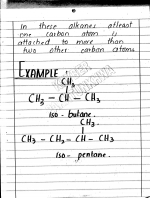 In these alkanes atleast
one carbon atom is
attached to more than
two other carbon atoms
EXAMPLE :
CH3
|
CH3 - CH - CH3
iso - butane.
CH3
|
CH3 - CH2 - CH - CH3
iso - pentane.